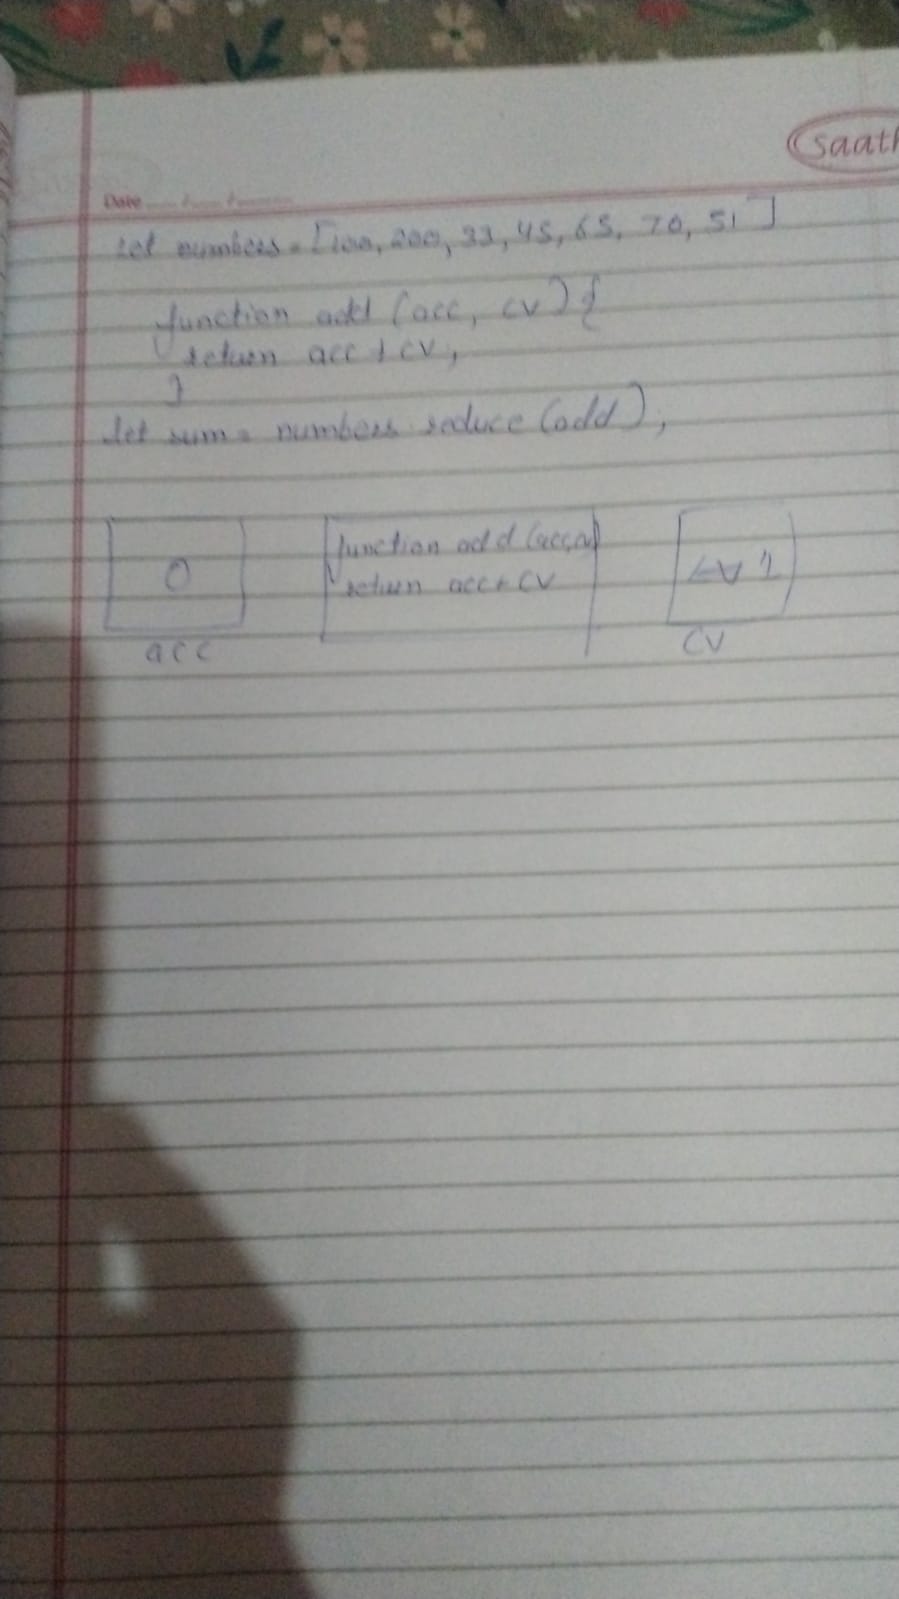 Saath
Date
let numbers = [100, 200, 33, 45, 65, 70, 51]
function add (acc, cv) {
return acc + cv;
}
let sum = numbers reduce (add);
0
function add (acc,cv)
return acc + cv
acc
cv